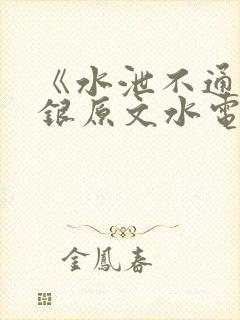 《水泄不通
銀原文水電
金鳳春